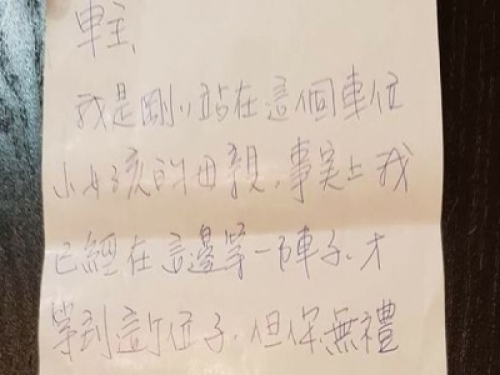 車主
我是剛剛站在這個車位
小女孩的母親,事实上我
已經在這邊等一陣子.才
等到這个位子.但你無禮